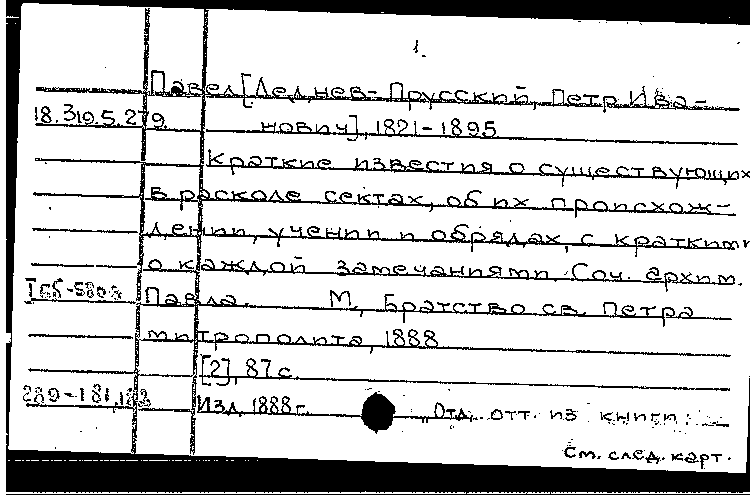 1.
Павел [Леднев-Прусский, Петр Ива-
18.319.5.279 нович], 1821-1895
Краткие известия о существующих
в расколе сектах, об их происхож-
дении, учении и обрядах, с краткими
о каждой замечаниями. Соч. архим.
Павла. М., Братство св. Петра
митрополита, 1888
[2], 87 с.
Изд. 1888 г. Отд. отт. из книги:
См. след. карт.